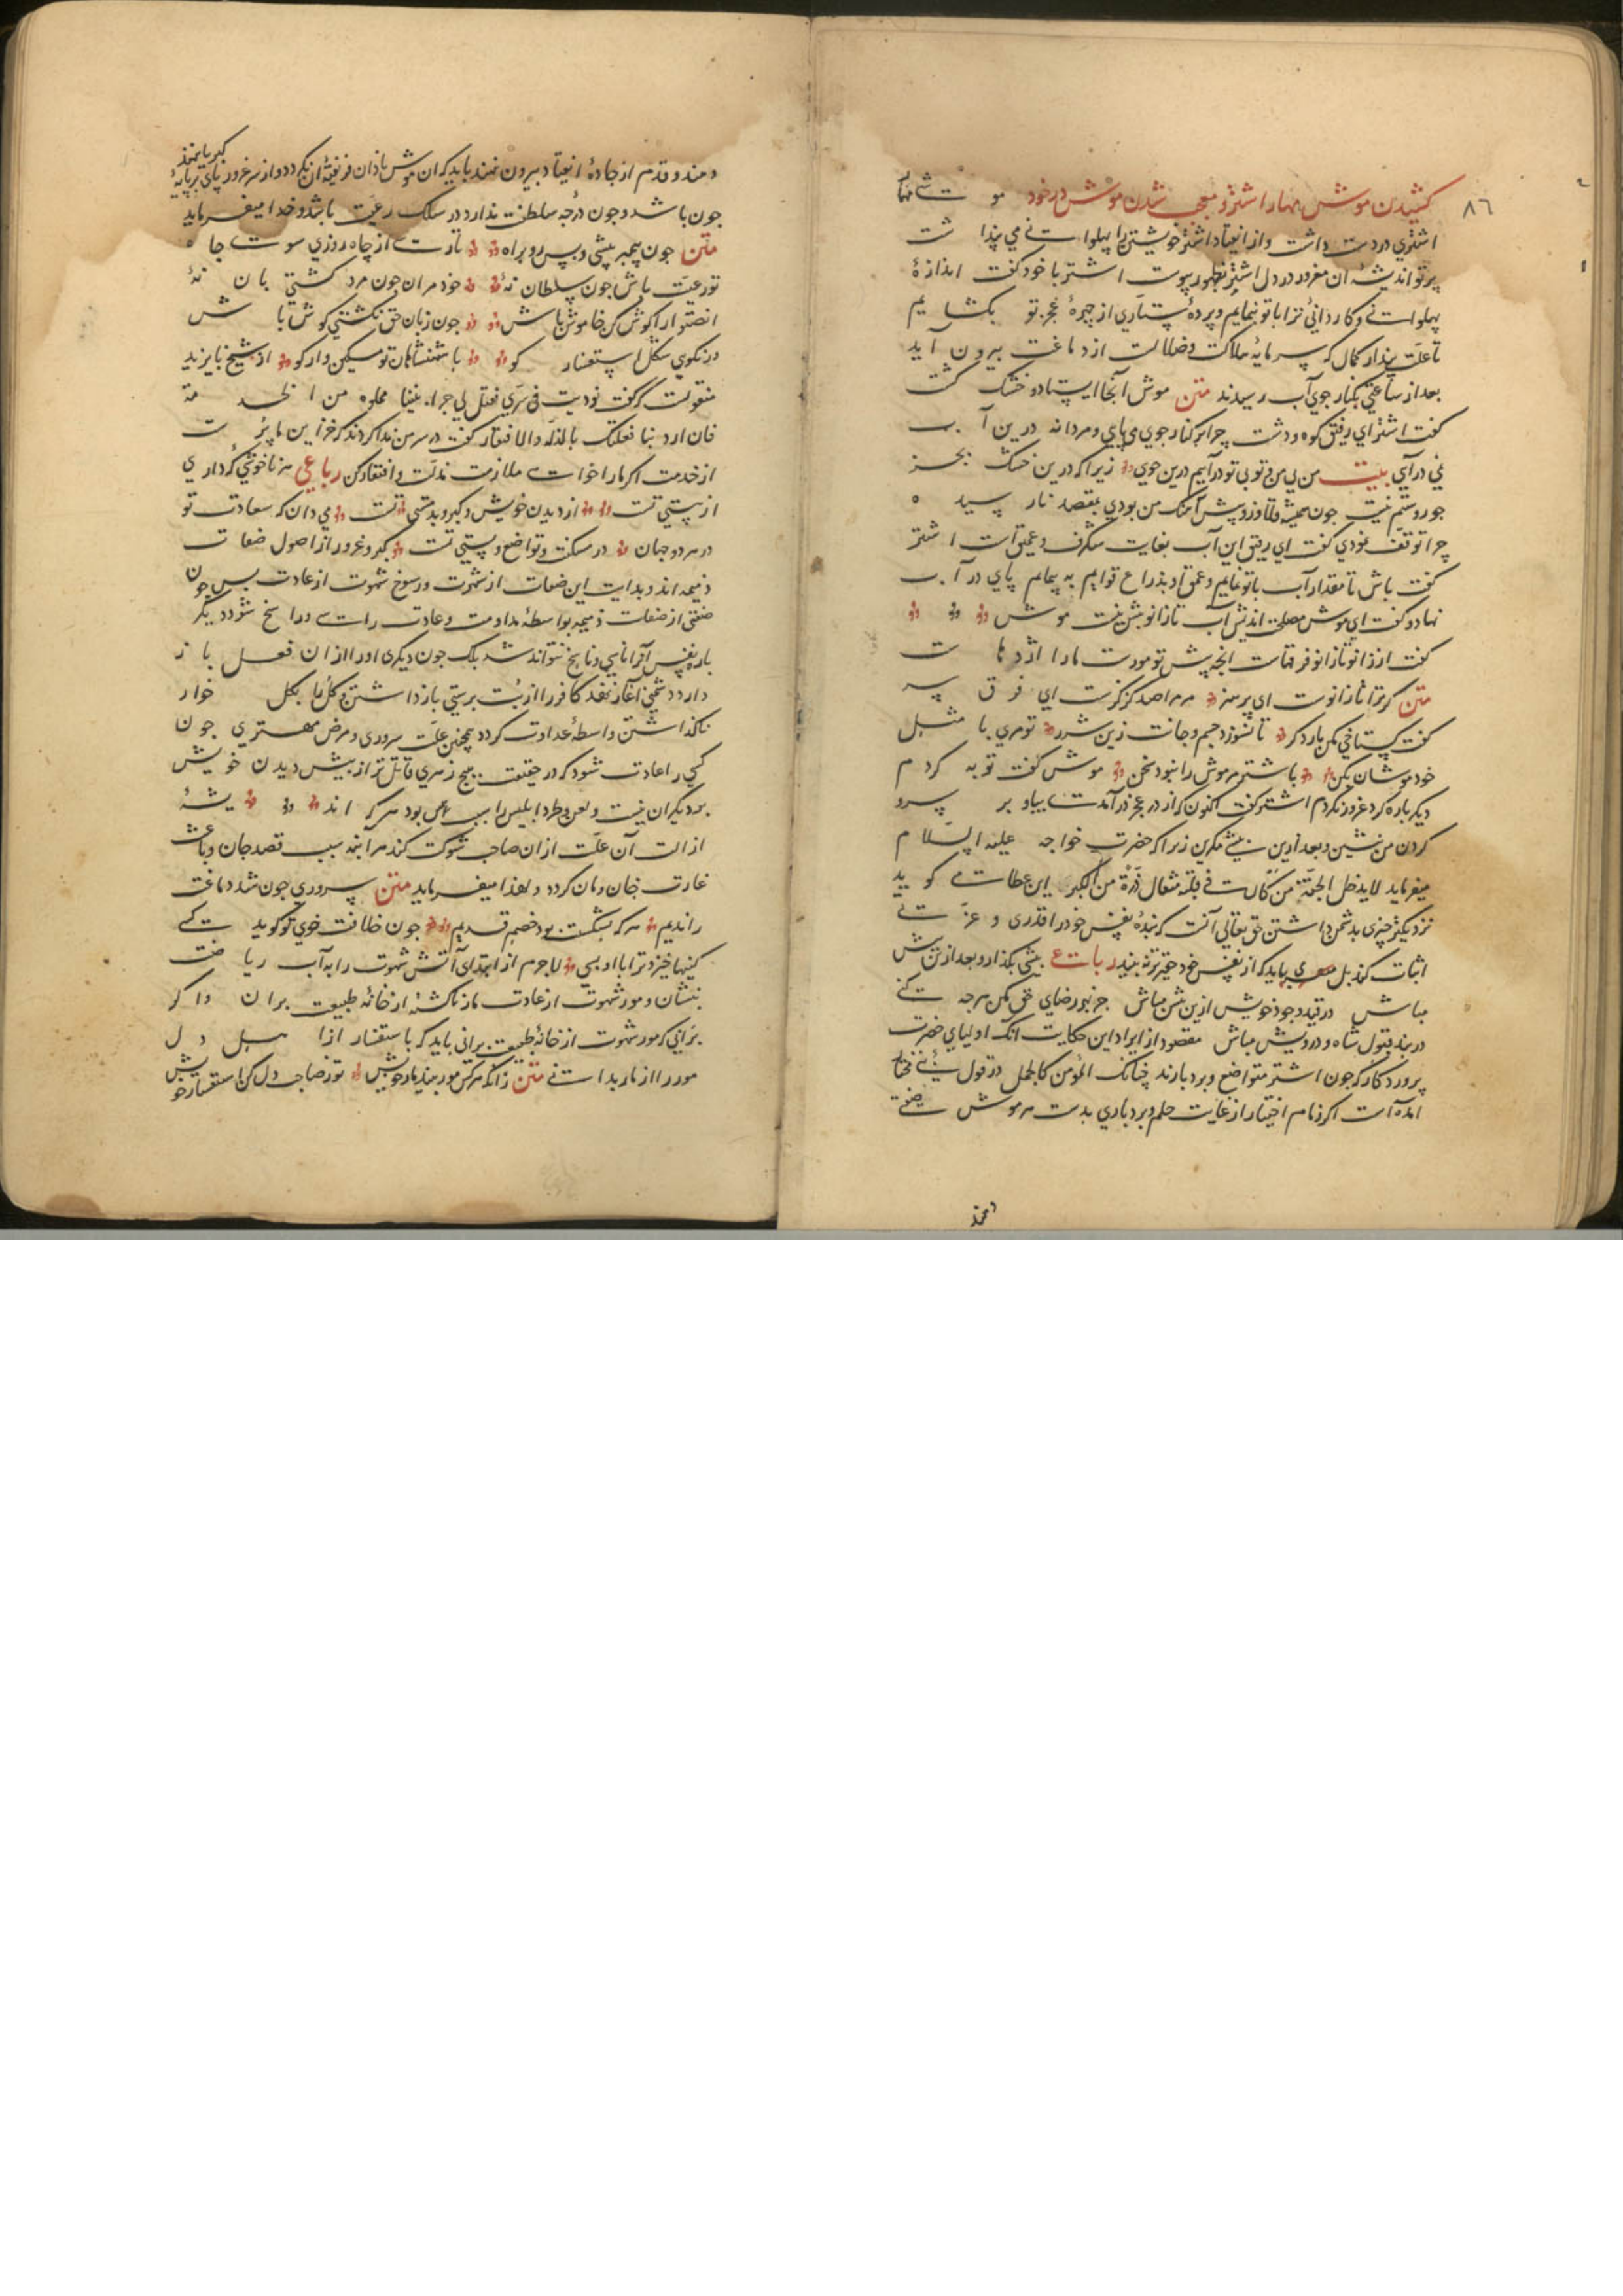 ٨٦
كشیدن موش مهار اشتر و معجب شدن موش در خود موشے مهار
اشتری در دست داشت و از انقیاد اشتر خویشتن را پهلوانے می پنداشت
پرتو اندیشهٔ ان مغرور در دل اشتر بظهور پیوست اشتر با خود كفت اندازهٔ
پهلوانے و كاردانئ ترا با تو بنمایم و پردهٔ پنداری از چهرهٔ عجز تو بكشایم
تا علت پندار كمال كه سرمایهٔ هلاكت و ضلالت از دماغت بیرون آید
بعد از ساعتی بكنار جوی آب رسیدند متن موش آنجا ایستاد و خشك كشت
كفت اشتر ای رفیق كوه و دشت چرا بر كنار جوی می پایی و مردانه درین آب
نمی درآیی بیت من بی من و تو بی تو درآییم درین جوی زیرا كه درین خشك بجز
جور و ستم نیست جون همیشه قلاوز و پیش آهنگ من بودی بمقصد نارسیده
چرا توقف نمودی كفت ای رفیق این آب بغایت شكرف و عمیق است اشتر
كفت باش تا مقدار آب با تو نمایم و عمق او بذراع قوایم به پیمایم پای در آب
نهاد و كفت ای موش مصلحت اندیش آب تا زانو بیش نیست موش
كفت از زانو تا زانو فرقهاست انچه پیش تو مورست ما را اژدهاست
متن كر ترا تا زانوست ای پر هنر مر مرا صد كز كذشت ای فرق سر
كفت كستاخی مكن بار دكر تا نسوزد جسم و جانت زین شرر تو مری با مثل
خود موشان بكن با شتر مر موش را نبود سخن موش كفت توبه كردم
دیكر باره كرد غرور نكردم اشتر كفت اكنون كه از در عجز درآمدی بیا و بر سر و
كردن من نشین و بعد ازین بیشے مكزین زیرا كه حضرت خواجه علیه السّلام
میفرماید لا یدخل الجنّة من كان فی قلبه مثقال ذرّة من الكبر ابن عطا مے كوید
نزدیكتر چیزی بدشمن داشتن حق تعالی آنست كه بندهٔ نفس خود را قدری و عزتے
اثبات كند بل باید كه از نفس خود حقیرتر نه بیند رباعے بیشی بكذار و بعد ازین پیش
مباش در قید وجود خویش ازین بیش مباش جز نبود رضای حق مكن هرچه كنے
در بند قبول شاه و درویش مباش مقصود از ایراد این حكایت آنك اولیای حضرت
پروردكار كه جون اشتر متواضع و بردبارند چنانك المؤمن كالجمل در قول نبی مختار
امده است اكر زمام اختیار از غایت حلم و بردباری بدست هر موش صفتے
دهند و
دهند و قدم از جادهٔ انقیاد بیرون ننهند باید كه ان موش نادان فریفتهٔ ان نكردد و از سر غرور پای بر پایهٔ
كبریا ننهد
جون باشد و جون درجه سلطنت ندارد در سلك رعیّت باشد و خدا میفرماید
متن جون پیمبر نیستی و پس رو براه تا رسے از چاه روزی سوے جاه
تو رعیّت باش جون سلطان نهٔ خود مران جون مرد كشتی بان نهٔ
انصتوا را كوش كن خاموش باش جون زبان حق نكشتی كوش باش
ور بكوی شكل استفسار كو با شهنشاهان تو مسكین وار كو از شیخ بایزید
منقولست كه كفت نودیت فی سری فقیل لی خزاینا مملوه من الخدمة
فان اردتنا فعلیك بالذلّه و الافتقار كفت در سر من ندا كردند كه خزاین ما پرست
از خدمت اكر ما را خواهے ملازمت مذلّت و افتقار كن رباعی هر ناخوشئ كه داری
از پستی تست از دیدن خویش و كبر و بد مستی تست می دان كه سعادت تو
در هر دو جهان در مسكنت و تواضع و پستی تست كبر و غرور از اصول صفات
ذمیمه اند و بدایت این صفات از شهوت و رسوخ شهوت از عادت بس جون
صفتی از صفات ذمیمه بواسطهٔ مداومت و عادت راسے و راسخ شود دیكر
باره نفس آنرا ناسی و ناسخ نتواند شد بلك جون دیكری او را از ان فعل باز
دارد دشمنی اغاز نهد كافر را از بت پرستی باز داشتن و كل را بكل خوار
ناكذاشتن واسطهٔ عداوت كردد همچنین علّت سروری و مرض مهتری جون
كسی را عادت شود كه در حقیقت هیچ زهری قاتل تر از بیش دیدن خویش
بر دیكران نیست و لعن و طرد ابلیس را سبب همین بود هر كه اندیشهٔ
ازالت آن علّت از ان صاحب شوكت كند هر آینه سبب قصد جان و باعث
غارت خان و مان كردد و لهذا میفرماید متن سروری جون شد دماغت
را ندیم هر كه بشكست بود خصم قدیم جون خلاف خوی تو كوید كسے
كینها خیزد ترا با او بسی لاجرم از ابتدای آتش شهوت را به آب ریاضت
بنشان و مور شهوت از عادت مار ناكشته از خانهٔ طبیعت بران و اكر
برانی كه مور شهوت از خانهٔ طبیعت برانی باید كه با استفسار از اهل دل
مور را از مار بدانے متن زانكه هركس مور بیند مار خویش تو ز صاحب دل كن استفسار خویش